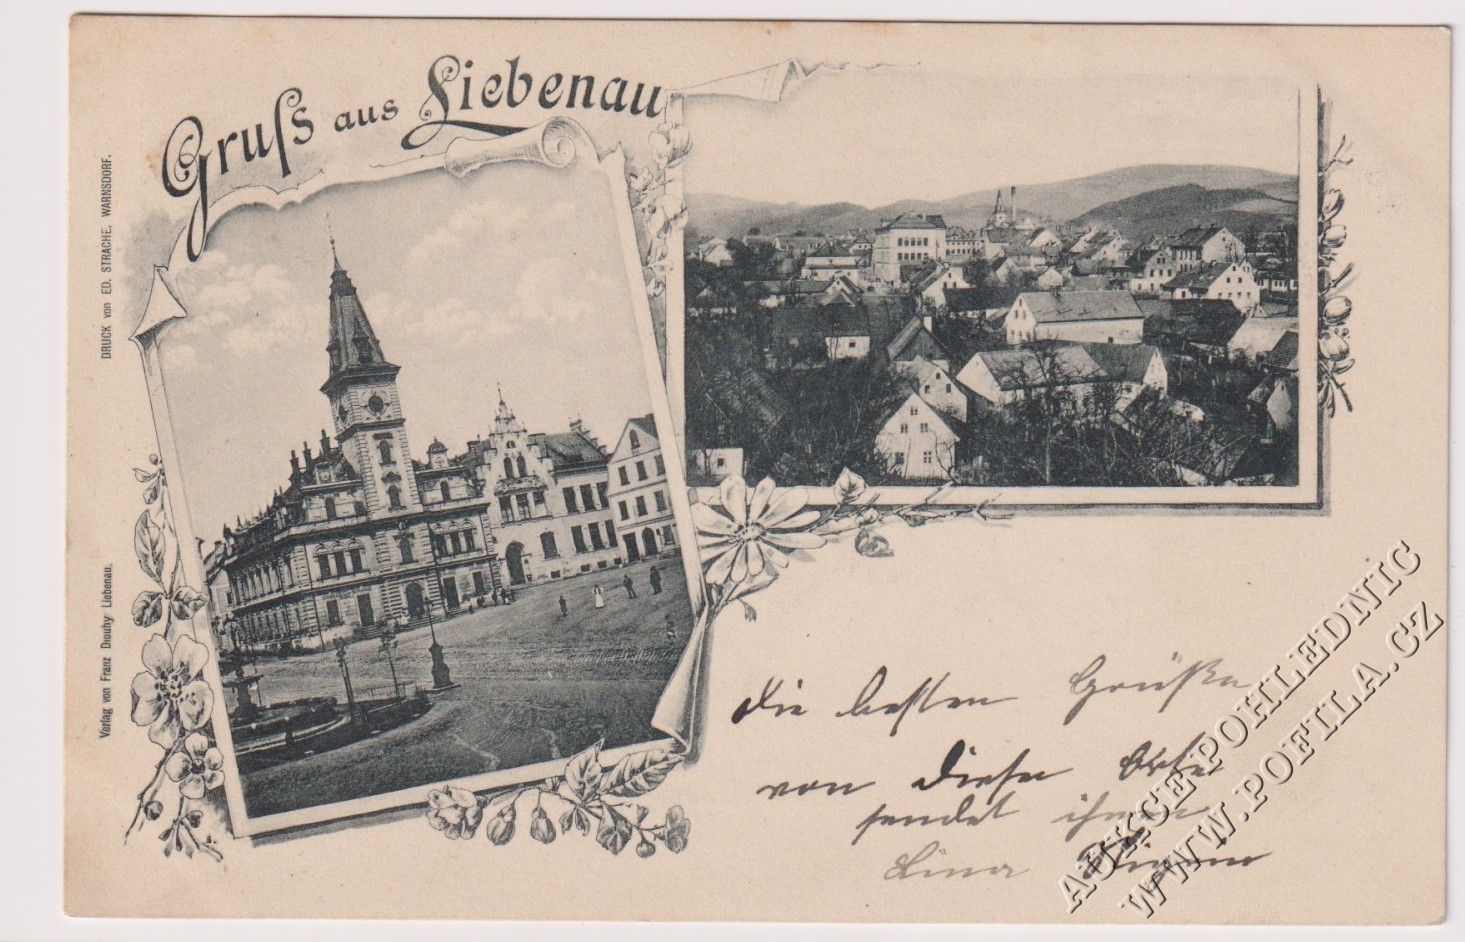 Gruß aus Liebenau
DRUCK von ED. STRACHE, WARNSDORF.
Verlag von Franz Dlouhy Liebenau.
Die besten Grüße
von diesen Orte
sendet ihnen
Lina
AUKCE POHLEDNIC
WWW.POFILA.CZ